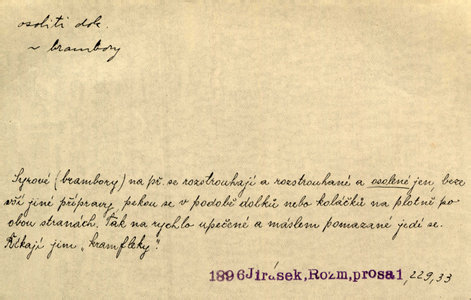 osoliti dok.
~ brambory
Syrové (brambory) na př. se rozstrouhají a rozstrouhané a osolené jen, beze
vší jiné přípravy, pekou se v podobě dolků nebo koláčků na plotně po
obou stranách. Tak na rychlo upečené a máslem pomazané jedí se.
Říkají jim „kramfleky".
1896 Jirásek, Rozm, prosa1, 229,33